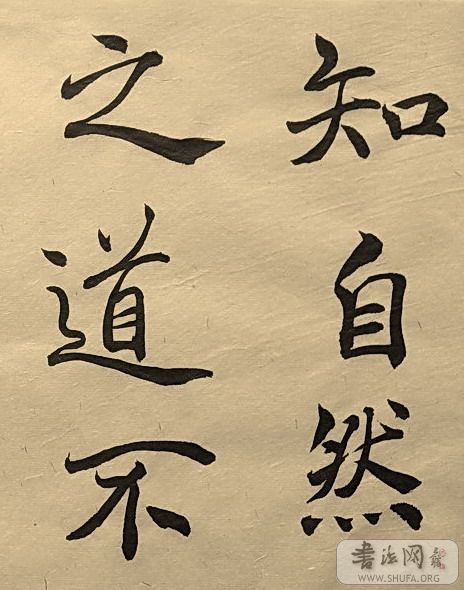 知自然
之道不
書法网
WWW.SHUFA.ORG